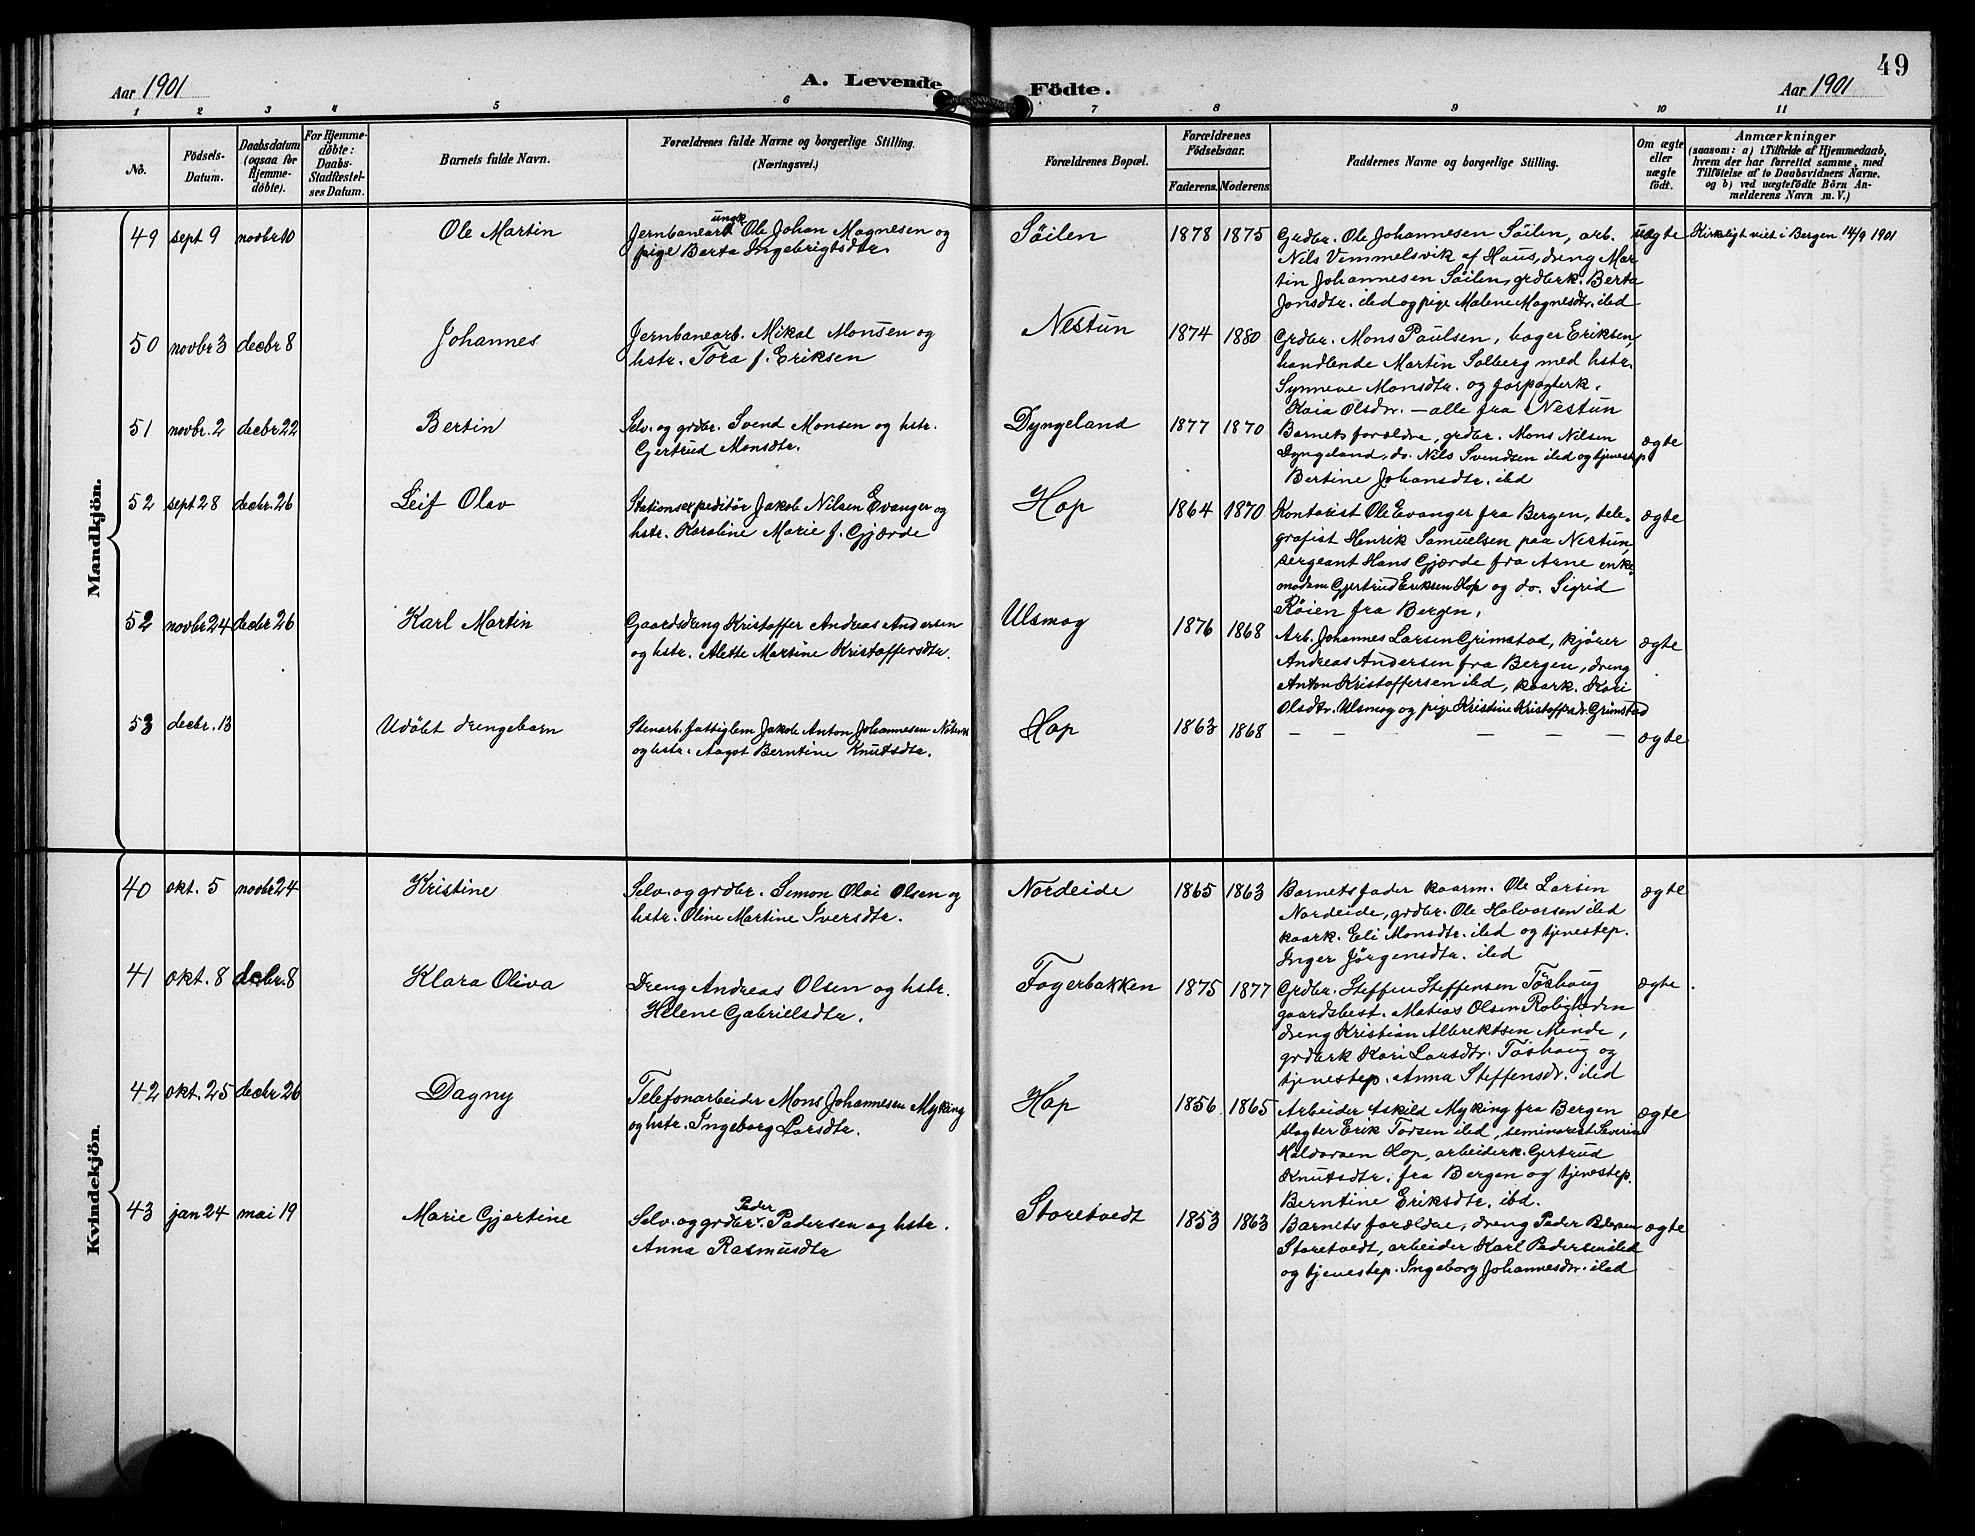 49
Aar 1901
A. Levende Födte.
Aar 1901
1 2 3 4 5 6 7 8 9 10 11
No.
Födsels-
Datum.
Daabsdatum
(ogsaa for
Hjemme-
döbte).
For Hjemme-
döbte:
Daabs-
Stadfæstel-
ses Datum.
Barnets fulde Navn.
Forældrenes fulde Navne og borgerlige Stilling.
(Næringsvei.)
Forældrenes Bopæl.
Forældrenes
Födselsaar.
Faderens. Moderens.
Faddernes Navne og borgerlige Stilling.
Om ægte
eller
uægte
födt.
Anmærkninger
(saasom: a) i Tilfælde af Hjemmedaab,
hvem der har forrettet samme, med
Tilföielse af to Daabsvidners Navne.
og b) ved uægtefödte Börn An-
melderens Navn m. V.)
Mandkjön.
49 sept 9 novbr 10 Ole Martin
ungk
Jernbanearb. Ole Johan Magnesen og
pige Berta Ingebrigtsdtr.
Söilen 1878 1875
Grdbr. Ole Johannesen Söilen, arb.
Nils Vimmelsvik af Haus, dreng Mar
tin Johannesen Söilen, grdbrk. Berta
Jonsdtr. ibd og pige Malene Magnesdtr. ibd
uægte
Kirkeligt viet i Bergen 14/9 1901
50 novbr 3 decbr 8 Johannes
Jernbanearb. Mikal Monsen og
hstr. Tora f. Eriksen
Nestun 1874 1880
Grdbr. Mons Paulsen, bager Eriksen,
handlende Martin Solberg med hstr.
Synneve Monsdtr. og forpagterk.
Kaia Olsdtr. – alle fra Nestun
51 novbr. 2 decbr 22 Bertin
Selv. og grdbr. Svend Monsen og hstr.
Gjertrud Monsdtr.
Dyngeland 1877 1870
Barnets forældre, grdbr. Mons Nilsen
Dyngeland, do. Nils Svendsen ibd og tjenestep.
Bertine Johansdtr. ibd
ægte
52 sept 28 decbr. 26 Leif Olav
Stationsexpeditör Jakob Nilsen Evanger og
hstr. Karoline Marie f. Gjærde
Hop 1864 1870
Kontorist Ole Evanger fra Bergen, tele-
grafist Henrik Samuelsen paa Nestun,
sergeant Hans Gjærde fra Arne enke-
madam Gjertrud Eriksen Hop og do. Sigrid
Röien fra Bergen.
ægte
52 novbr 24 decbr 26 Karl Martin
Gaardsdreng Kristoffer Andreas Andersen
og hstr. Alette Martine Kristoffersdtr.
Ulsmog 1876 1868
Arb. Johannes Larsen Grimstad, kjörer
Andreas Andersen fra Bergen, dreng
Anton Kristoffersen ibd, kaark. Kari
Olsdtr. Ulsmog og pige Kristine Kristoffersdr. Grimstad
ægte
53 decbr. 13 Udöbt drengebarn
Stenarb. fattiglem Jakob Anton Johannesen
og hstr. Aagot Berntine Knutsdtr.
Hop 1863 1868
– – – – – –
ægte
Kvindekjön.
40 okt. 5 novbr 24 Kristine
Selv. og grdbr. Simon Olai Olsen og
hstr. Oline Martine Iversdtr.
Nordeide 1865 1863
Barnets fader kaarm. Ole Larsen
Nordeide, grdbr. Ole Halvorsen ibd
kaark. Eli Monsdtr. ibd og tjenestep.
Inger Jörgensdtr. ibd
ægte
41 okt. 8 decbr. 8 Klara Oliva
Dreng Andreas Olsen og hstr.
Helene Gabrielsdtr.
Fagerbakken 1875 1877
Grdbr. Steffen Steffensen Töshaug
gaardsbest. Matias Olsen Roligheden
dreng Kristian Albrektsen Minde,
grdbrk Kari Larsdtr. Töshaug og
tjenestep. Anna Steffensdr. ibd
ægte
42 okt. 25 decbr 26 Dagny
Telefonarbeider Mons Johannesen Myking
og hstr. Ingeborg Larsdtr.
Hop 1856 1865
Arbeider Askild Myking fra Bergen
slagter Erik Torsen ibd, seminarist Severin
Haldorsen Hop, arbeiderk. Gertrud
Knutsdtr. fra Bergen og tjenestep.
Berntine Eriksdtr. ibd.
ægte
43 jan 24 mai 19 Marie Gjertine
Peder
Selv. og grdbr. Pedersen og hstr.
Anna Rasmusdtr
Storetvedt 1853 1863
Barnets forældre, dreng Peder Pedersen
Storetvedt, arbeider Karl Pedersen ibd
og tjenestep. Ingeborg Johannesdtr. ibd
ægte